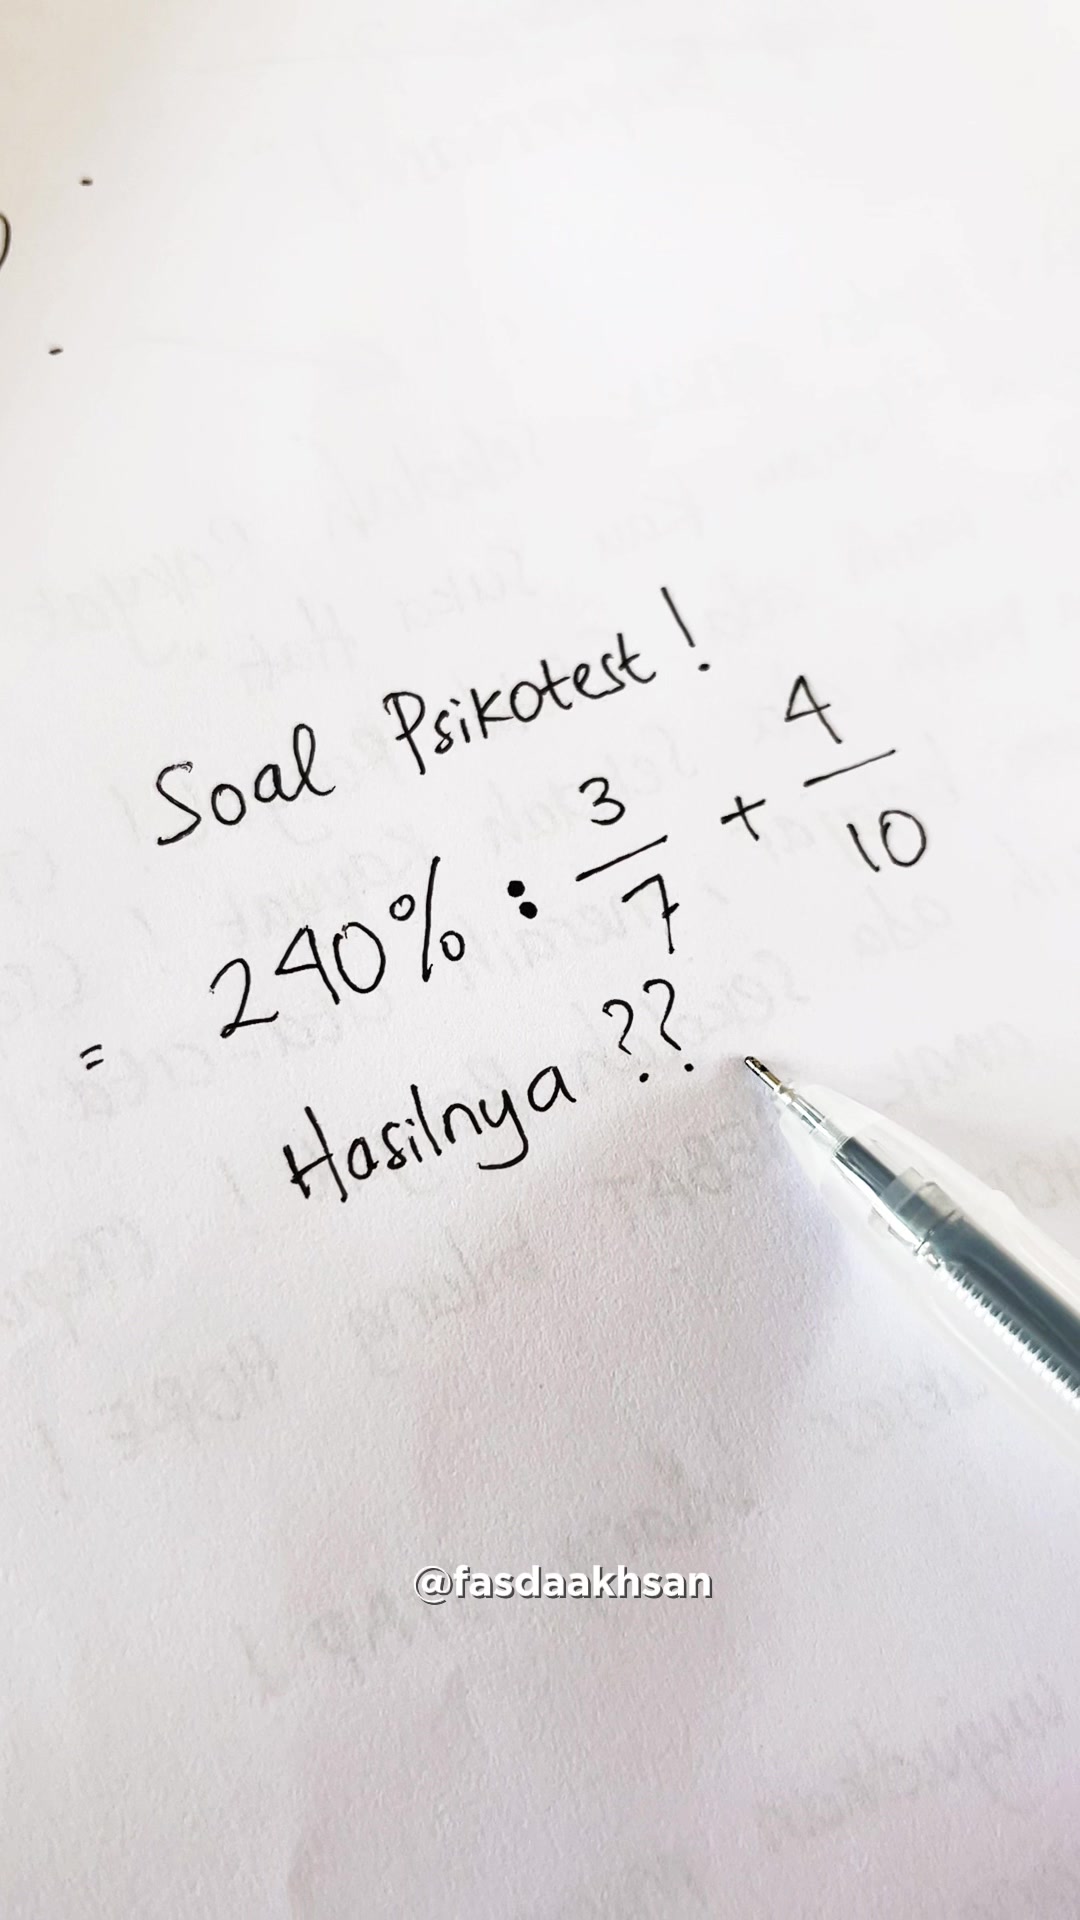 Soal Psikotest !
= 240% : 3/7 + 4/10
Hasilnya ??
@fasdaakhsan